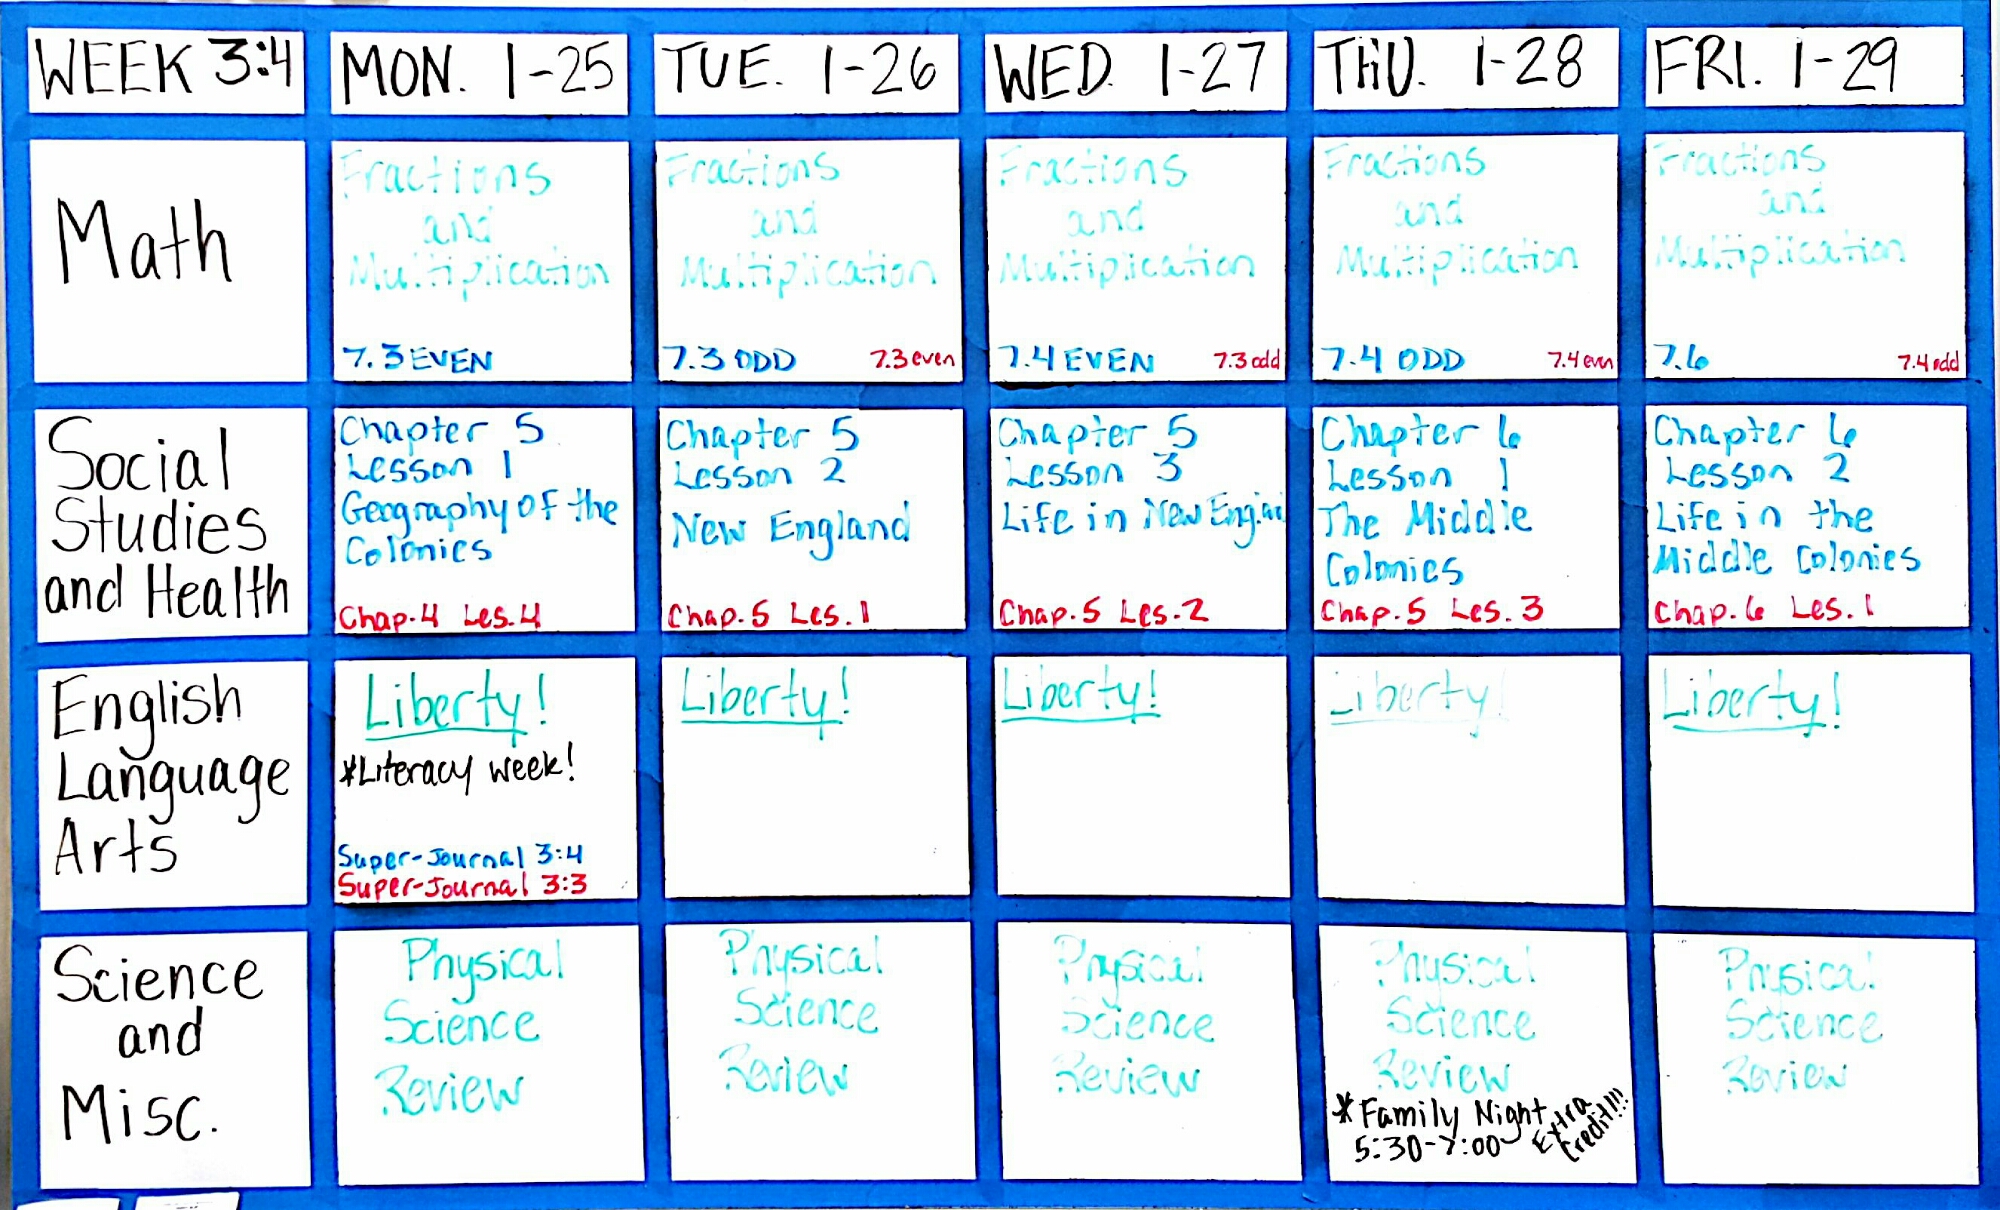 WEEK 3:4
MON. 1-25
TUE. 1-26
WED. 1-27
THU. 1-28
FRI. 1-29
Math
Fractions
and
Multiplication
7.3 EVEN
Fractions
and
Multiplication
7.3 ODD 7.3 even
Fractions
and
Multiplication
7.4 EVEN 7.3 odd
Fractions
and
Multiplication
7.4 ODD 7.4 even
Fractions
and
Multiplication
7.6 7.4 odd
Social
Studies
and Health
Chapter 5
Lesson 1
Geography of the
Colonies
Chap. 4 Les. 4
Chapter 5
Lesson 2
New England
Chap. 5 Les. 1
Chapter 5
Lesson 3
Life in New England
Chap. 5 Les. 2
Chapter 6
Lesson 1
The Middle
Colonies
Chap. 5 Les. 3
Chapter 6
Lesson 2
Life in the
Middle Colonies
Chap. 6 Les. 1
English
Language
Arts
Liberty!
*Literacy week!
Super-Journal 3:4
Super-Journal 3:3
Liberty!
Liberty!
Liberty!
Liberty!
Science
and
Misc.
Physical
Science
Review
Physical
Science
Review
Physical
Science
Review
Physical
Science
Review
*Family Night
5:30-7:00
Extra
Credit!!!
Physical
Science
Review